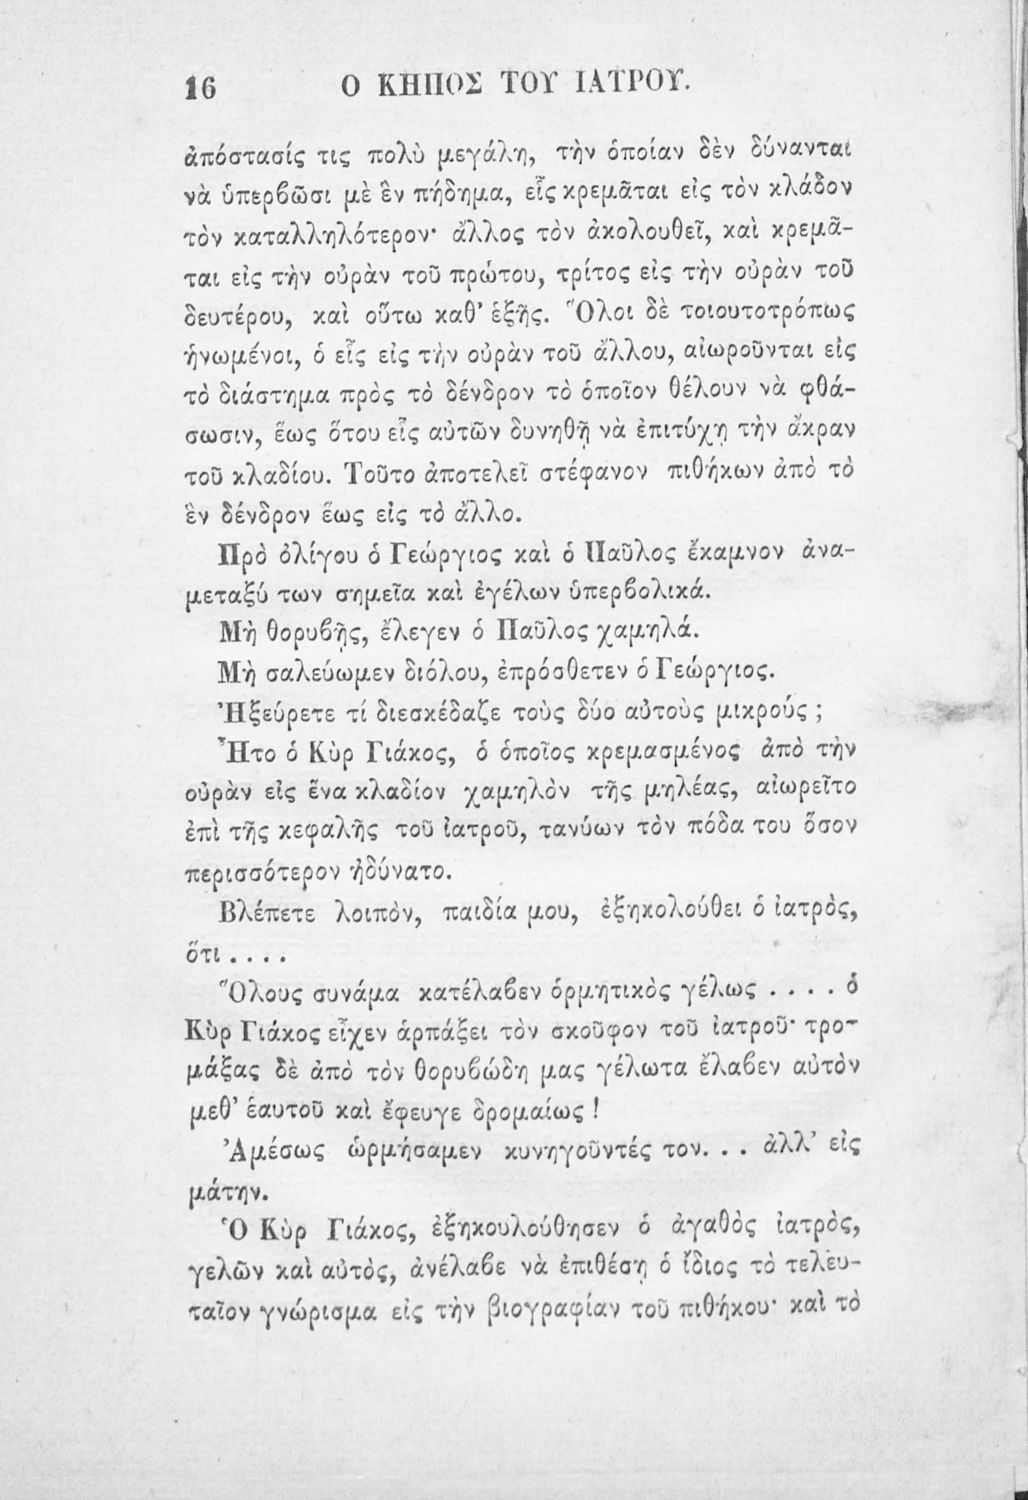 16 Ο ΚΗΠΟΣ ΤΟΥ ΙΑΤΡΟΥ.
ἀπόστασίς τις πολὺ μεγάλη, τὴν ὁποίαν δὲν δύνανται
νὰ ὑπερβῶσι μὲ ἓν πήδημα, εἷς κρεμᾶται εἰς τὸν κλάδον
τὸν καταλληλότερον· ἄλλος τὸν ἀκολουθεῖ, καὶ κρεμᾶ-
ται εἰς τὴν οὐρὰν τοῦ πρώτου, τρίτος εἰς τὴν οὐρὰν τοῦ
δευτέρου, καὶ οὕτω καθ’ ἑξῆς. Ὅλοι δὲ τοιουτοτρόπως
ἡνωμένοι, ὁ εἷς εἰς τὴν οὐρὰν τοῦ ἄλλου, αἰωροῦνται εἰς
τὸ διάστημα πρὸς τὸ δένδρον τὸ ὁποῖον θέλουν νὰ φθά-
σωσιν, ἕως ὅτου εἷς αὐτῶν δυνηθῇ νὰ ἐπιτύχῃ τὴν ἄκραν
τοῦ κλαδίου. Τοῦτο ἀποτελεῖ στέφανον πιθήκων ἀπὸ τὸ
ἓν δένδρον ἕως εἰς τὸ ἄλλο.
Πρὸ ὀλίγου ὁ Γεώργιος καὶ ὁ Παῦλος ἔκαμνον ἀνα-
μεταξύ των σημεῖα καὶ ἐγέλων ὑπερβολικά.
Μὴ θορυβῇς, ἔλεγεν ὁ Παῦλος χαμηλά.
Μὴ σαλεύωμεν διόλου, ἐπρόσθετεν ὁ Γεώργιος.
Ἠξεύρετε τί διεσκέδαζε τοὺς δύο αὐτοὺς μικρούς ;
Ἦτο ὁ Κὺρ Γιάκος, ὁ ὁποῖος κρεμασμένος ἀπὸ τὴν
οὐρὰν εἰς ἕνα κλαδίον χαμηλὸν τῆς μηλέας, αἰωρεῖτο
ἐπὶ τῆς κεφαλῆς τοῦ ἰατροῦ, τανύων τὸν πόδα του ὅσον
περισσότερον ἠδύνατο.
Βλέπετε λοιπὸν, παιδία μου, ἐξηκολούθει ὁ ἰατρὸς,
ὅτι . . . .
Ὅλους συνάμα κατέλαβεν ὁρμητικὸς γέλως . . . . ὁ
Κὺρ Γιάκος εἶχεν ἁρπάξει τὸν σκοῦφον τοῦ ἰατροῦ· τρο-
μάξας δὲ ἀπὸ τὸν θορυβώδη μας γέλωτα ἔλαβεν αὐτὸν
μεθ’ ἑαυτοῦ καὶ ἔφευγε δρομαίως !
Ἀμέσως ὡρμήσαμεν κυνηγοῦντές τον. . . ἀλλ’ εἰς
μάτην.
Ὁ Κὺρ Γιάκος, ἐξηκουλούθησεν ὁ ἀγαθὸς ἰατρὸς,
γελῶν καὶ αὐτὸς, ἀνέλαβε νὰ ἐπιθέσῃ ὁ ἴδιος τὸ τελευ-
ταῖον γνώρισμα εἰς τὴν βιογραφίαν τοῦ πιθήκου· καὶ τὸ